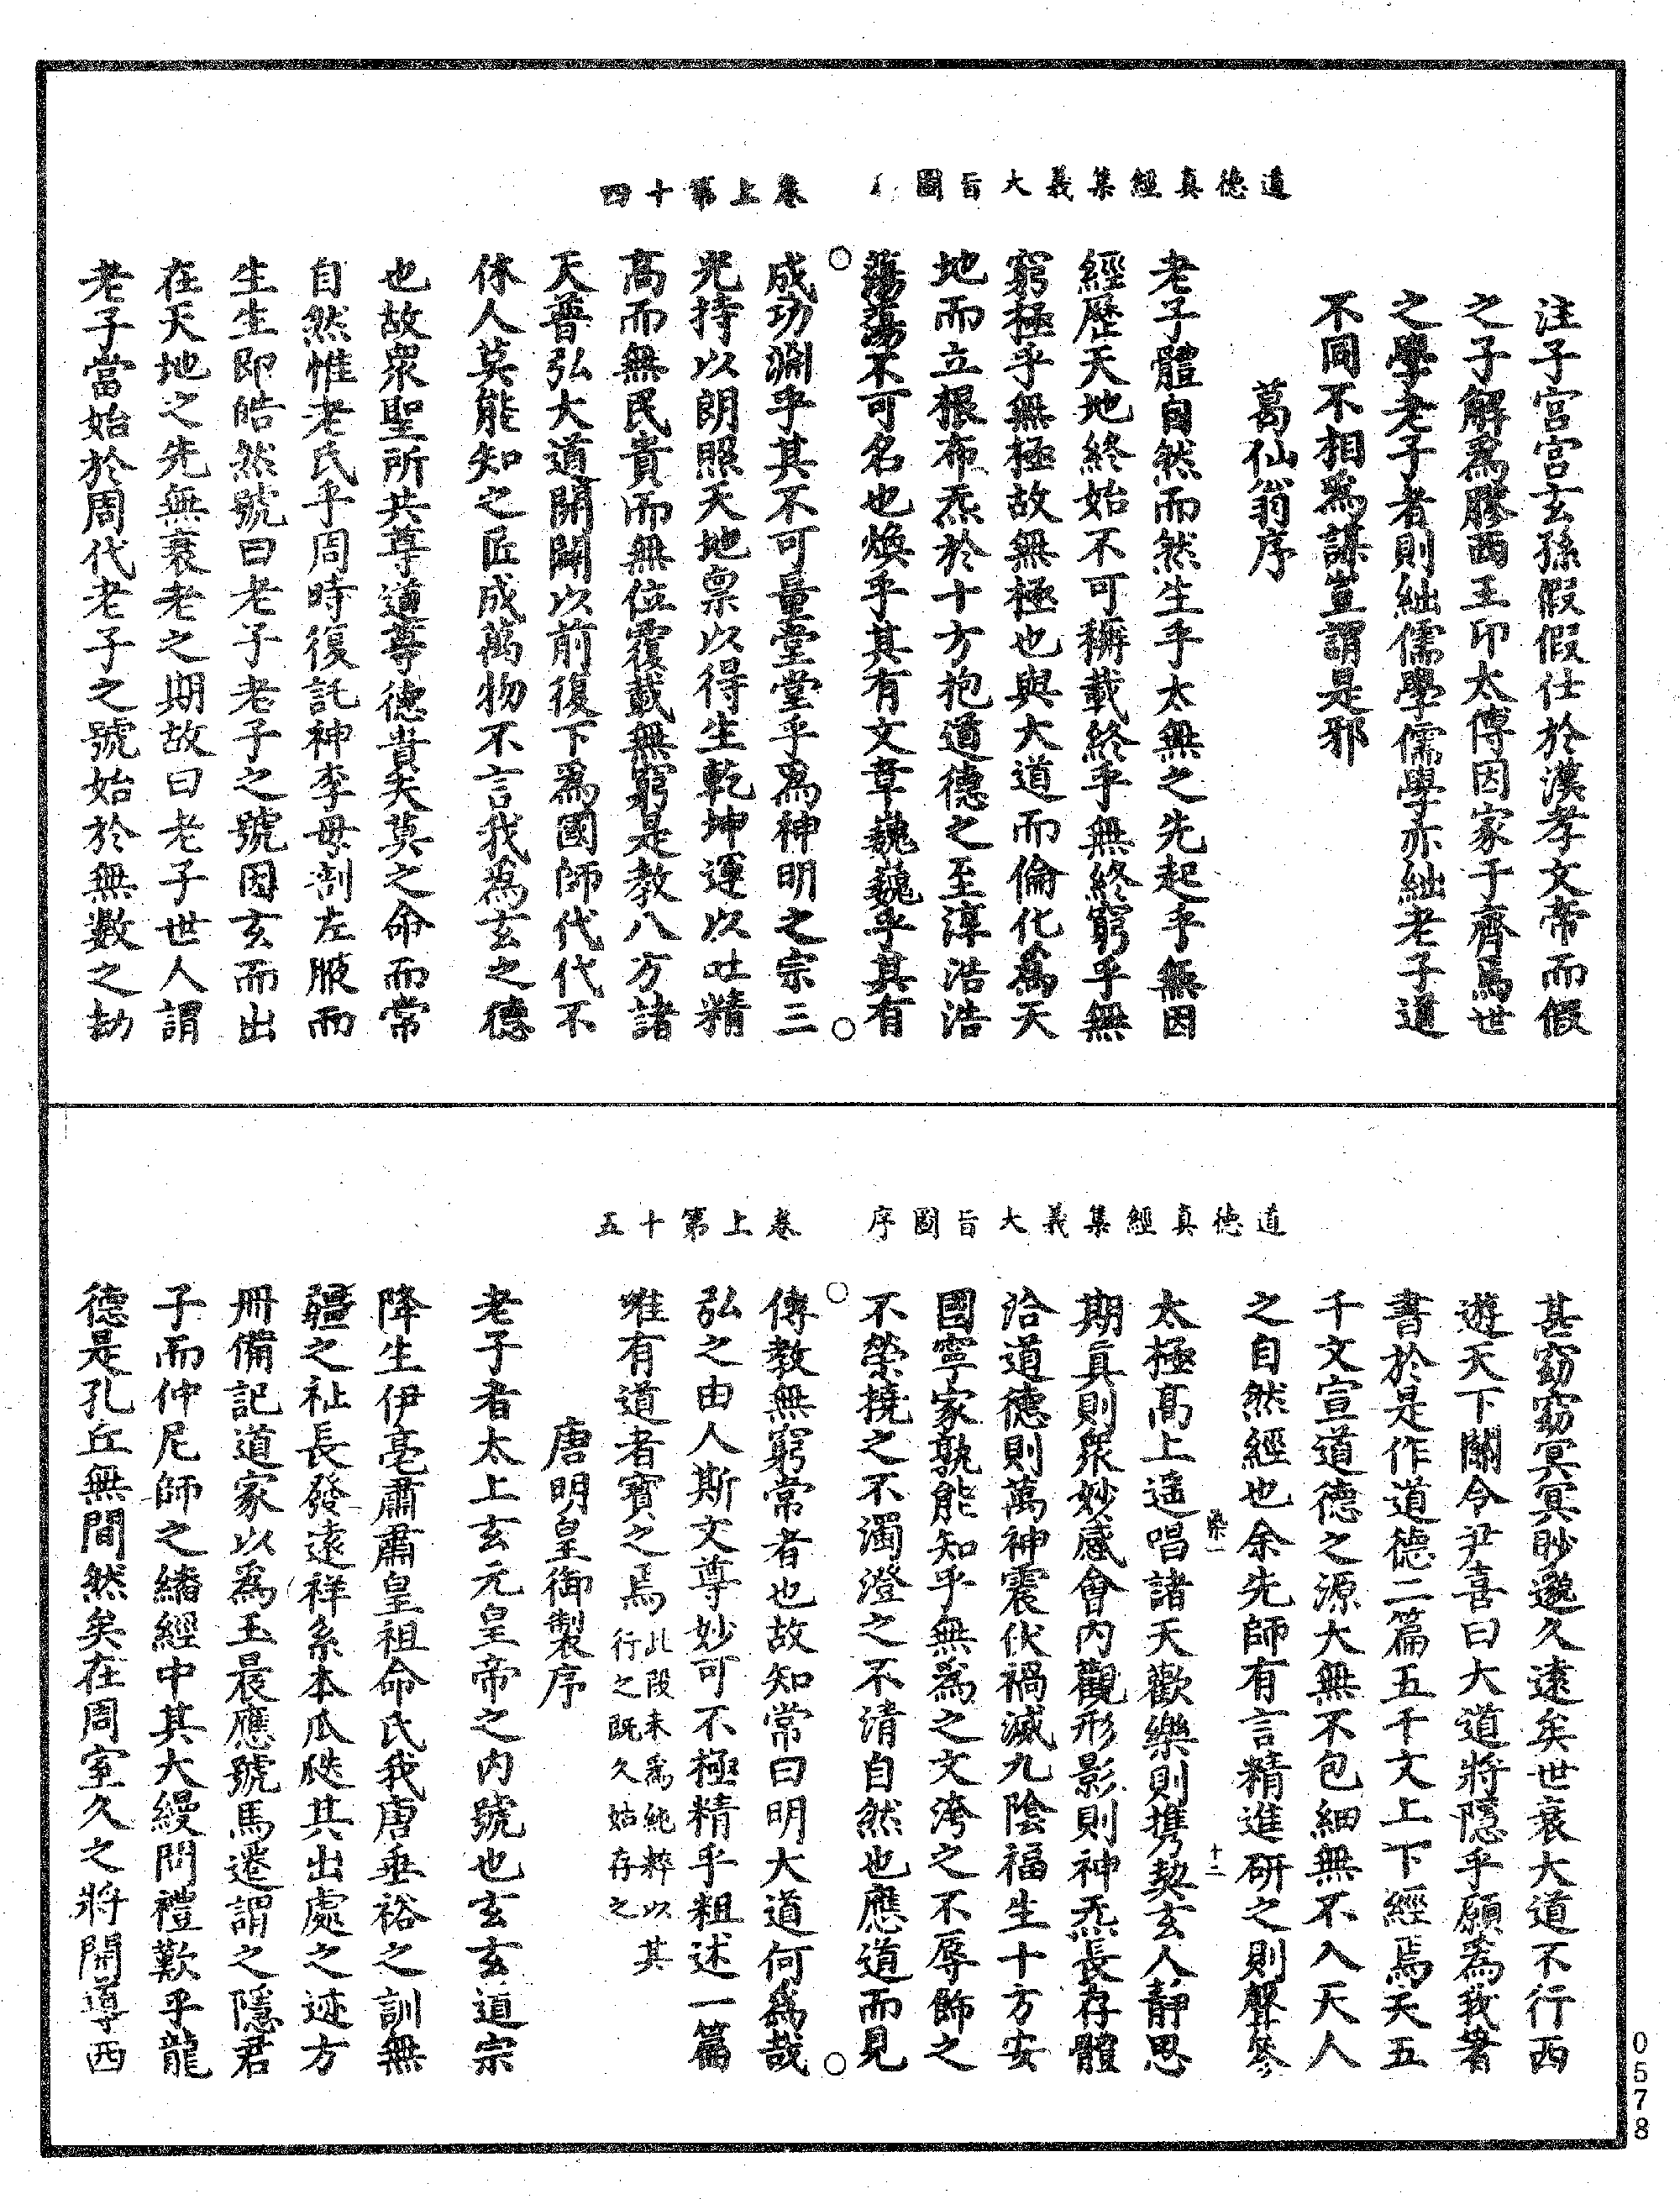 道德真經集義大旨圖
卷上第十四
注子宫宫玄孫假假仕於漢孝文帝而假
之子解爲膠西王卬太傅因家于齊焉世
之學老子者則絀儒學儒學亦絀老子道
不同不相爲謀豈謂是邪
葛仙翁序
老子體自然而然生乎太無之先起乎無因
經歷天地終始不可稱載終乎無終窮乎無
窮極乎無極故無極也與大道而倫化爲天
地而立根布炁於十方抱道德之至淳浩浩
蕩蕩不可名也煥乎其有文章巍巍乎其有
成功淵乎其不可量堂堂乎爲神明之宗三
光持以朗照天地禀以得生乾坤運以吐精
高而無民貴而無位覆載無窮是教八方諸
天普弘大道開闢以前復下爲國師代代不
休人莫能知之匠成萬物不言我爲玄之德
也故衆聖所共尊道尊德貴夫莫之命而常
自然惟老氏乎周時復託神李母剖左腋而
生生即皓然號曰老子老子之號因玄而出
在天地之先無衰老之期故曰老子世人謂
老子當始於周代老子之號始於無數之劫
道德真經集義大旨圖序
卷上第十五
甚窈窈冥冥眇邈久遠矣世衰大道不行西
遊天下關令尹喜曰大道將隱乎願爲我著
書於是作道德二篇五千文上下經焉夫五
千文宣道德之源大無不包細無不入天人
之自然經也余先師有言精進研之則聲參
十二
太極高上遥唱諸天歡樂則携契玄人静思
期真則衆妙感會内觀形影則神炁長存體
洽道德則萬神震伏禍滅九陰福生十方安
國寧家孰能知乎無爲之文洿之不辱飾之
不榮撓之不濁澄之不清自然也應道而見
傳教無窮常者也故知常曰明大道何爲哉
弘之由人斯文尊妙可不極精乎粗述一篇
唯有道者寶之焉
此段未爲純粹以其
行之既久姑存之
唐明皇御製序
老子者太上玄元皇帝之内號也玄玄道宗
降生伊亳肅肅皇祖命氏我唐垂裕之訓無
疆之祉長發遠祥系本瓜瓞其出處之迹方
冊備記道家以爲玉晨應號馬遷謂之隱君
子而仲尼師之緒經中其大縵問禮歎乎龍
德是孔丘無間然矣在周室久之將開導西
0578